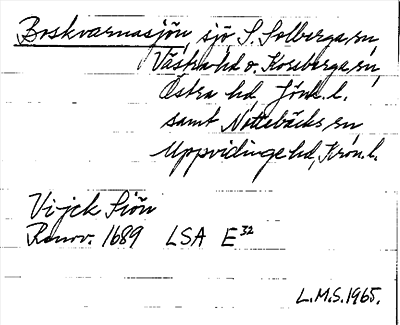 Boskvarnasjön, sjö S. Solberga sn,
Västra hd o. Korsberga sn,
Östra hd, Jönk. l.
samt Nottebäcks sn,
Uppvidinge hd, Kron. l.
Vijck Siön
Renov. 1689 LSA E32
L.M.S. 1965.